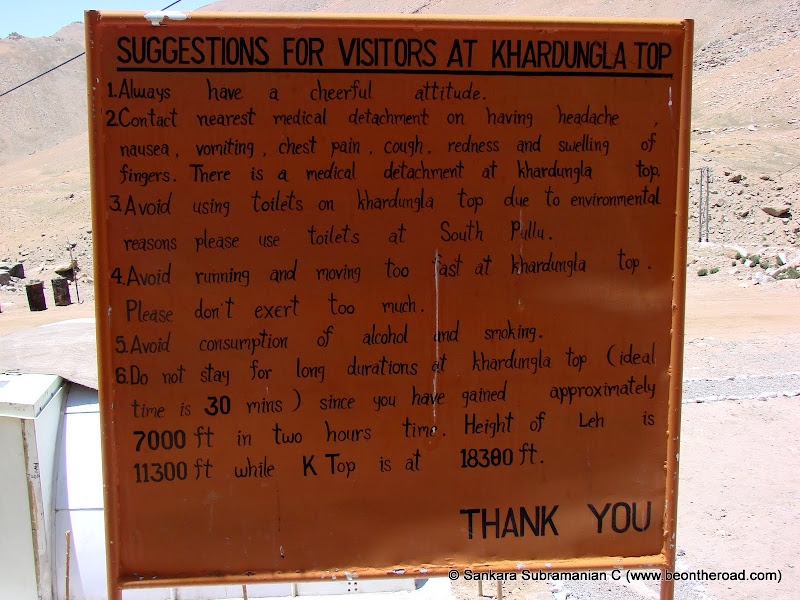 SUGGESTIONS FOR VISITORS AT KHARDUNGLA TOP
1. Always have a cheerful attitude.
2. Contact nearest medical detachment on having headache,
nausea, vomiting, chest pain, cough, redness and swelling of
fingers. There is a medical detachment at khardungla top.
3. Avoid using toilets on khardungla top due to environmental
reasons please use toilets at South Pullu.
4. Avoid running and moving too fast at khardungla top.
Please don't exert too much.
5. Avoid consumption of alcohol and smoking.
6. Do not stay for long durations at khardungla top (ideal
time is 30 mins) since you have gained approximately
7000 ft in two hours time. Height of Leh is
11300 ft while K Top is at 18380 ft.
THANK YOU
© Sankara Subramanian C (www.beontheroad.com)